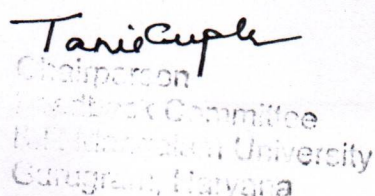 Tanie Gupta
Chairperson
Feedback Committee
K.R. Mangalam University
Gurugram, Haryana